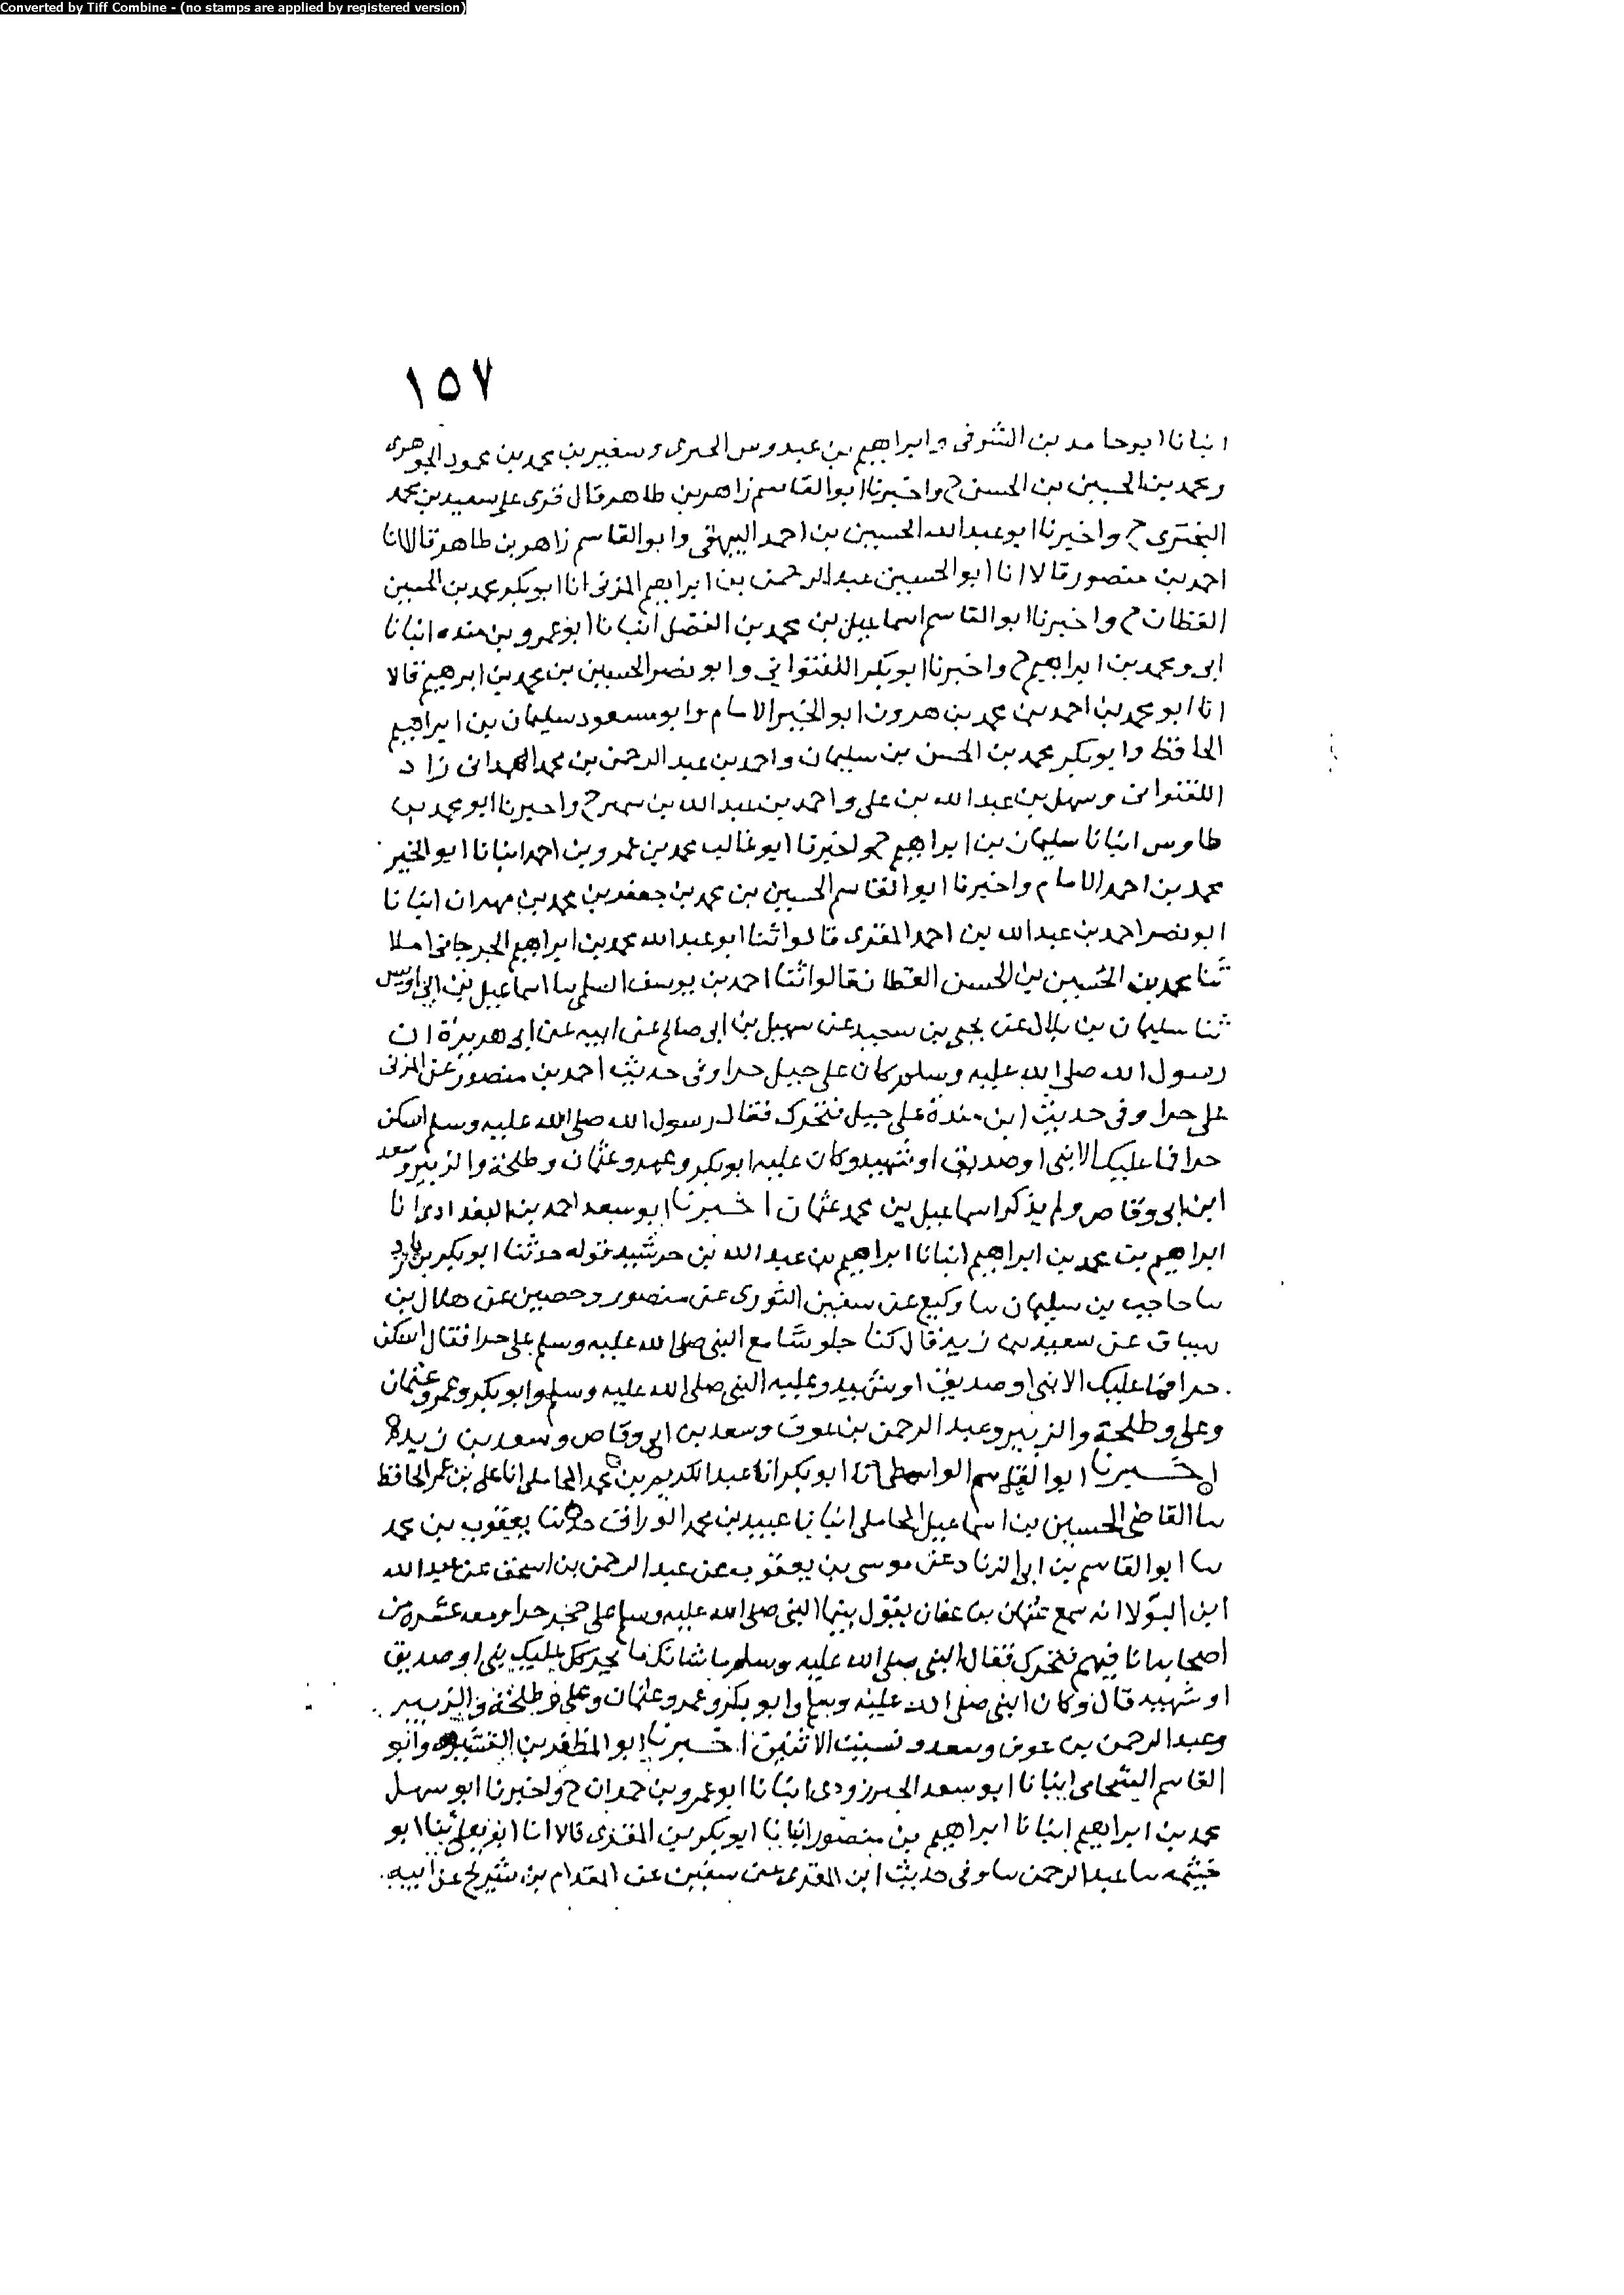 Converted by Tiff Combine - (no stamps are applied by registered version)
١٥٧
انبانا ابو حامد بن الشرقى وابراهيم بن عبدوس الحيرى وسفين بن محمد بن محمود الجوهرى
ومحمد بن الحسين بن الحسن ح واخبرنا ابو القاسم زاهر بن طاهر قال قرى على سعيد بن محمد
البحترى ح واخبرنا ابو عبد الله الحسين بن احمد البيهقى وابو القاسم زاهر بن طاهر قالا انا
احمد بن منصور قالا انا ابو الحسين عبد الرحمن بن ابراهيم المزنى انا ابو بكر محمد بن الحسين
القطان ح واخبرنا ابو القاسم اسماعيل بن محمد بن الفضل انبانا ابو عمرو بن منده انبانا
ابى ومحمد بن ابراهيم ح واخبرنا ابو بكر اللفتوانى وابو نصر الحسين بن محمد بن ابرهيم قالا
انا ابو محمد بن احمد بن محمد بن هرون ابو الخير الامام وابو مسعود سليمان بن ابراهيم
الحافظ وابو بكر محمد بن الحسن بن سليمان واحمد بن عبد الرحمن بن محمد الهمدانى زاد
اللفتوانى وسهل بن عبد الله بن على واحمد بن عبد الله بن سمير ح واخبرنا ابو محمد بن
طاوس انبانا سليمان بن ابراهيم ح واخبرنا ابو غالب محمد بن عمرو بن احمد انبانا ابو الخير
محمد بن احمد الامام واخبرنا ابو القاسم الحسين بن محمد بن جعفر بن محمد بن مهران انبانا
ابو نصر احمد بن عبد الله بن احمد المقرى قالوا ثنا ابو عبد الله محمد بن ابراهيم الجرجانى املا
ثنا محمد بن الحسين بن الحسن القطان فقالوا ثنا احمد بن يوسف السلمى سا اسماعيل بن ابى اويس
ثنا سليمان بن بلال عن يحيى بن سعيد عن سهيل بن ابى صالح عن ابيه عن ابى هريرة ان
رسول الله صلى الله عليه وسلم كان على جبل حرا وفى حديث احمد بن منصور عن المزنى
على حرا وفى حديث ابن مندة على جبل فتحرك فقال رسول الله صلى الله عليه وسلم اسكن
حرا فما عليك الا نبى او صديق او شهيد وكان عليه ابو بكر وعمر وعثمان وطلحة والزبير وسعد
ابن ابى وقاص ولم يذكر اسماعيل بن محمد عثمان اخبرنا ابو سعد احمد بن البغدادى انا
ابراهيم بن محمد بن ابراهيم انبانا ابراهيم بن عبد الله بن خرشيد قوله حدثنا ابو بكر بن زياد
سا حاجب بن سليمان سا وكيع عن سفين الثورى عن منصور وحصين عن هلال بن
يساف عن سعيد بن زيد قال كنا جلوسًا مع النبى صلى الله عليه وسلم على حرا فقال اسكن
حرا فما عليك الا نبى او صديق او شهيد وعليه النبى صلى الله عليه وسلم وابو بكر وعمر وعثمان
وعلى وطلحة والزبير وعبد الرحمن بن عوف وسعد بن ابى وقاص وسعد بن زيد
اخبرنا ابو القاسم الواسطى انا ابو بكر انا عبد الكريم بن محمد المحاملى انا على بن عمر الحافظ
سا القاضى الحسين بن اسماعيل المحاملى انبانا عبيد بن محمد الوراق حدثنا يعقوب بن محمد
سا ابو القاسم بن ابى الزناد عن موسى بن يعقوب عن عبد الرحمن بن اسحق عن عبد الله
ابن البولا انه سمع عثمان بن عفان يقول بينما النبى صلى الله عليه وسلم على صخر حرا ومعه عشرة من
اصحابه انا فيهم فتحرك فقال النبى صلى الله عليه وسلم ما شانك ما يحركك عليك نبى او صديق
او شهيد قال وكان النبى صلى الله عليه وسلم وابو بكر وعمر وعثمان وعلى وطلحة والزبير
وعبد الرحمن بن عوف وسعد ونسيت الاثنين اخبرنا ابو المظفر بن القشيرى وابو
القاسم الشحامى انبانا ابو سعد الجنزرودى انبانا ابو عمرو بن حمدان ح واخبرنا ابو سهل
محمد بن ابراهيم انبانا ابراهيم بن منصور انبانا ابو بكر بن المقرى قالا انا ابو يعلى ثنا ابو
خيثمه سا عبد الرحمن سا وفى حديث ابن المقرى عن سفين عن المقدام بن شريح عن ابيه